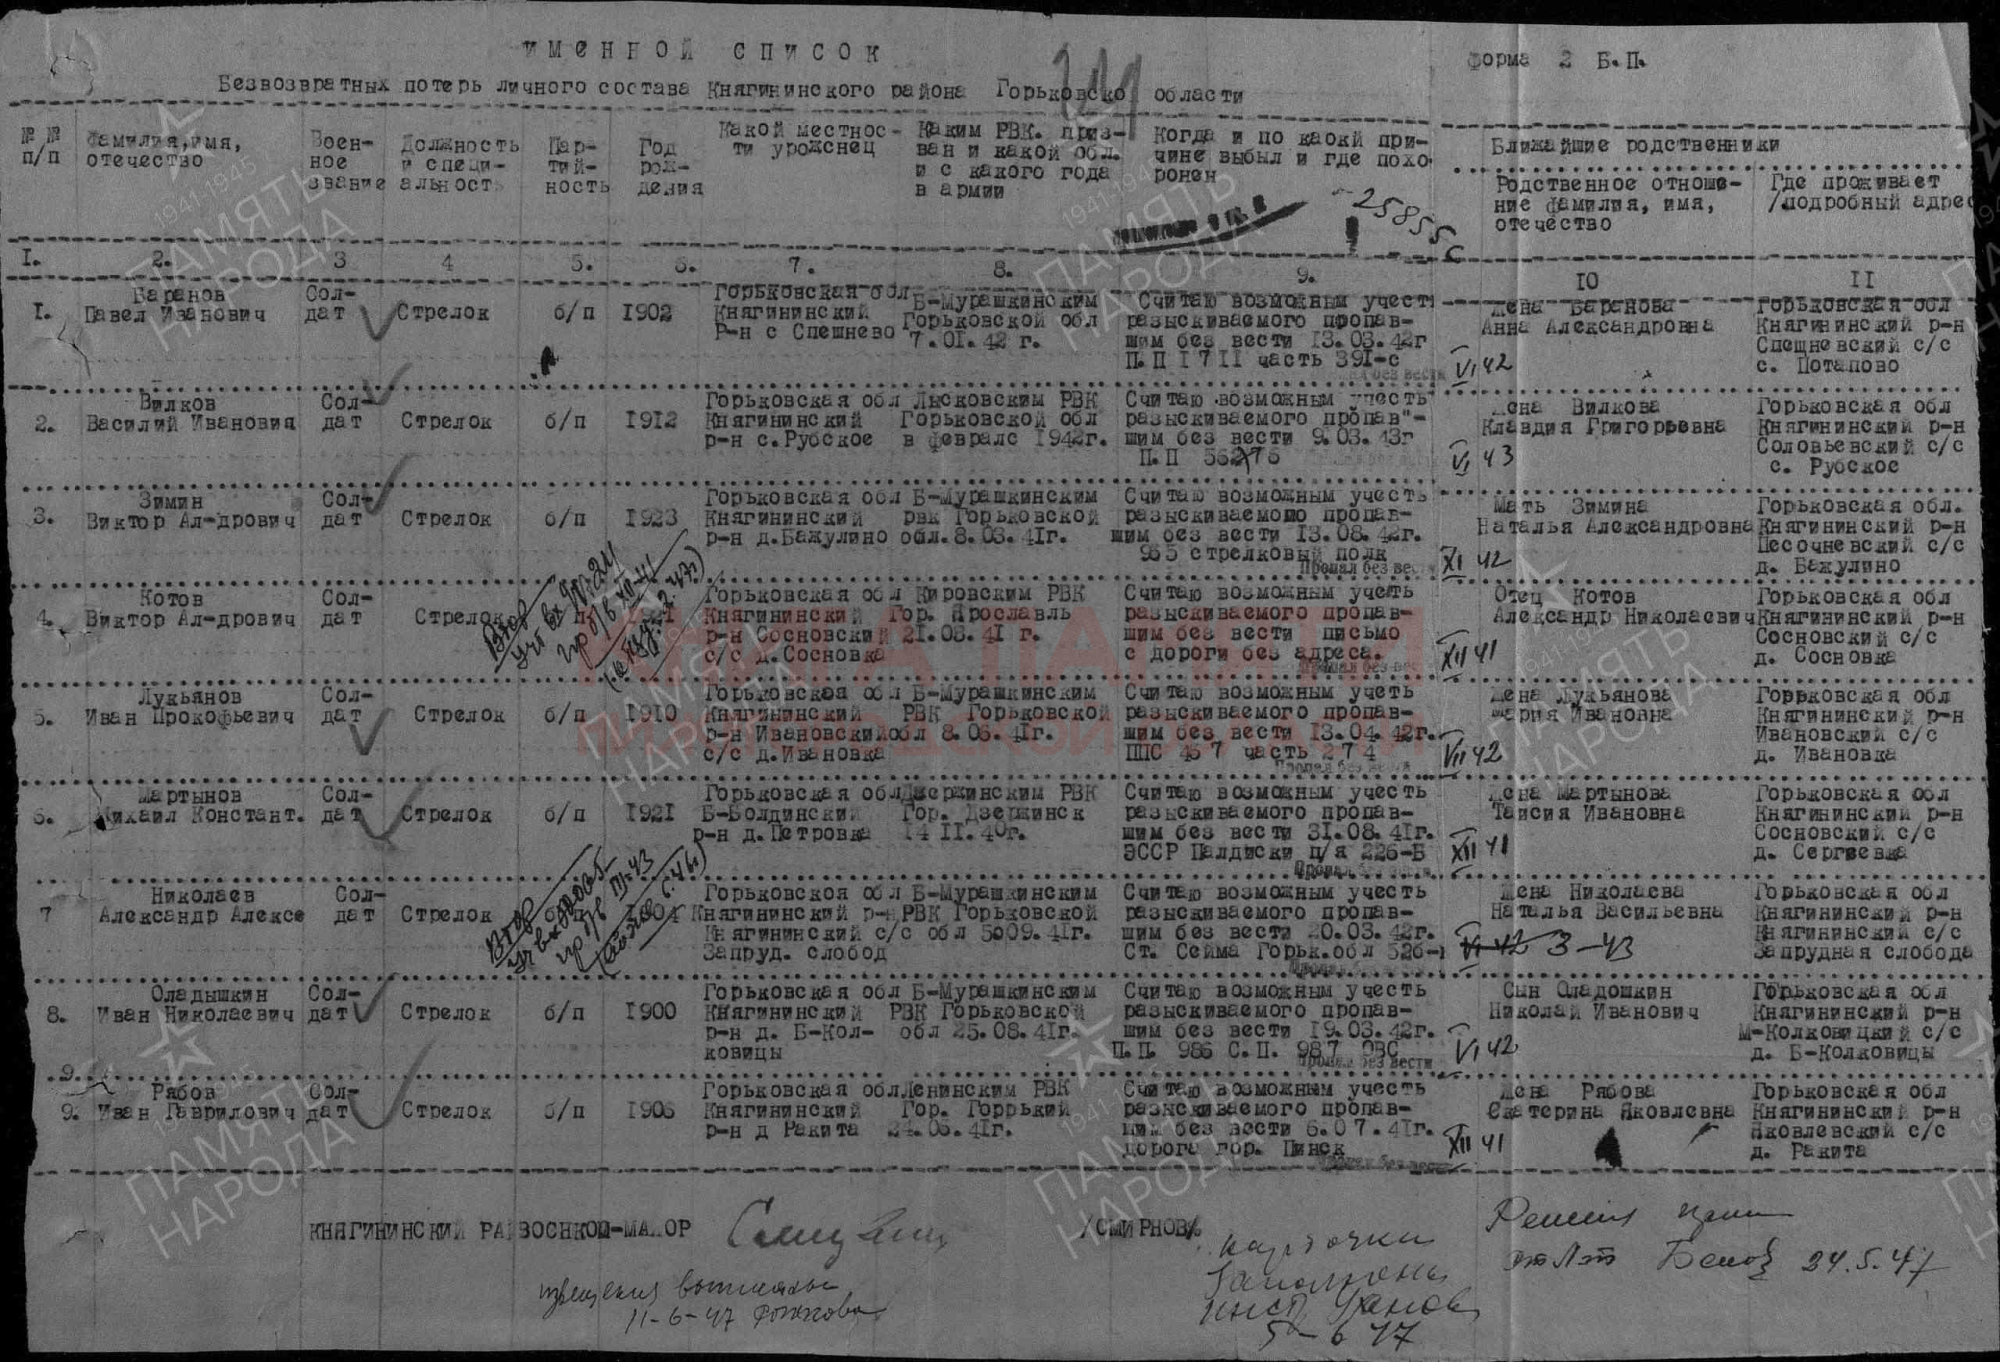 ИМЕННОЙ СПИСОК
форма 2 Б.П.
Безвозвратных потерь личного состава Княгининского района Горьковско области
№ № п/п
Фамилия,имя, отчество
Воен-
ное
звание
Должность
и специ-
альность
Пар-
тий-
ность
Год
рож-
дения
Какой местнос-
ти урожснец
Каким РВК. приз-
ван и какой обл.
и с какого года
в армии
Когда и по каокй при-
чине выбыл и где похо
ронен
Ближайшие родственники
Родственное отноше-
ние фамилия, имя,
отечество
Где проживает
/подробный адрес
I. 2. 3 4 5. 6. 7. 8. 9. 10 II
I.
Баранов
Павел Иванович
Сол-
дат
Стрелок
б/п
1902
Горьковская обл
Княгининский
Р-н с Спешнево
Б-Мурашкинским
Горьковской обл
7.01.42 г.
Считаю возможным учест
разыскиваемого пропав-
шим без вести 13.03.42г
П.П I7II часть 391-с
VI 42
Жена Баранова
Анна Александровна
Горьковская обл
Княгининский р-н
Спешневский с/с
с. Потапово
2.
Вилков
Василий Иванович
Сол-
дат
Стрелок
б/п
1912
Горьковская обл
Княгининский
р-н с.Рубское
Лысковским РВК
Горьковской обл
в феврале 1942г.
Считаю возможным учесть
разыскиваемого пропав"-
шим без вести 9.03.43г
П.П
VI 43
Жена Вилкова
Клавдия Григорьевна
Горьковская обл
Княгининский р-н
Соловьевский с/с
с. Рубское
3.
Зимин
Виктор Ал-дрович
Сол-
дат
Стрелок
б/п
1923
Горьковская обл
Княгининский
р-н д.Бажулино
Б-Мурашкинским
рвк Горьковской
обл.8.03.41г.
Считаю возможным учесть
разыскиваемою пропав-
шим без вести 13.08.42г.
935 стрелковый полк
Пропал без вести
XI 42
Мать Зимина
Наталья Александровна
Горьковская обл.
Княгининский р-н
Песочневский с/с
д. Бажулино
4.
Котов
Виктор Ал-дрович
Сол-
дат
Стрелок
Горьковская обл
Княгининский
р-н Сосновский
с/с д.Сосновка
Кировским РВК
Гор. Ярославль
21.08.41 г.
Считаю возможным учесть
разыскиваемого пропав-
шим без вести письмо
с дороги без адреса.
XII 41
Отец Котов
Александр Николаевич
Горьковская обл
Княгининский р-н
Сосновский с/с
д. Сосновка
5.
Лукьянов
Иван Прокофьевич
Сол-
дат
Стрелок
б/п
1910
Горьковская обл
Княгининский
р-н Ивановский
с/с д.Ивановка
Б-Мурашкинским
РВК Горьковской
обл 8.06.41г.
Считаю возможным учеть
разыскиваемого пропав-
шим без вести 13.04.42г.
ППС 457 часть 274
Пропал без вести
VII 42
Жена Лукьянова
Мария Ивановна
Горьковская обл
Княгининский р-н
Ивановский с/с
д. Ивановка
6.
Мартынов
Михаил Констант.
Сол-
дат
Стрелок
б/п
1921
Горьковская обл
Б-Болдинский
р-н д.Петровка
Дзержинским РВК
Гор. Дзержинск
14 II.40г.
Считаю возможным учесть
разыскиваемого пропав-
шим без вести 31.08.41г.
ЭССР Палдиски п/я 226-Б
XII 41
Жена Мартынова
Таисия Ивановна
Горьковская обл
Княгининский р-н
Сосновский с/с
д. Сергеевка
7
Николаев
Александр Алексе
Сол-
дат
Стрелок
1904
Горьковскоя обл
Княгининский р-н
Княгининский с/с
Запруд. слобод
Б-Мурашкинским
РВК Горьковской
обл 5009.41г.
Считаю возможным учесть
разыскиваемого пропав-
шим без вести 20.03.42г.
Ст. Сейма Горьк.обл
VI 42 3-43
Жена Николаева
Наталья Васильевна
Горьковская обл
Княгининский р-н
Княгининский с/с
Запрудная слобода
8.
Оладышкин
Иван Николаевич
Сол-
дат
Стрелок
б/п
1900
Горьковская обл
Княгининский
р-н д. Б-Кол-
ковицы
Б-Мурашкинским
РВК Горьковской
обл 25.08.41г.
Считаю возможным учесть
разыскиваемого пропав-
шим без вести 19.03.42г.
П.П. 986 С.П. 987 ОВС
Пропал без вести
VI 42
Сын Оладошкин
Николай Иванович
Горьковская обл
Княгининский р-н
М-Колковицкий с/с
д. Б-Колковицы
9
9.
Рябов
Иван Гаврилович
Сол-
дат
Стрелок
б/п
1906
Горьковская обл
Княгининский
р-н д Ракита
Ленинским РВК
Гор. Горрький
24.06.41г.
Считаю возможным учесть
разыскиваемого пропав-
шим без вести 6.07.41г.
дорога гор. Пинск
XII 41
Жена Рябова
Екатерина Яковлевна
Горьковская обл
Княгининский р-н
Яковлевский с/с
д. Ракита
КНЯГИНИНСКИЙ РАЙВОЕНКОМ-МАЙОР
/СМИРНОВ/
карточки
заполнены
5-6 47
24.5.47
11-6-47
ПАМЯТЬ НАРОДА
1941-1945